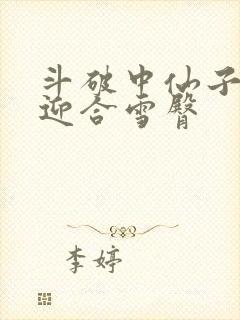 斗破中仙子
迎合雪臀
李婷